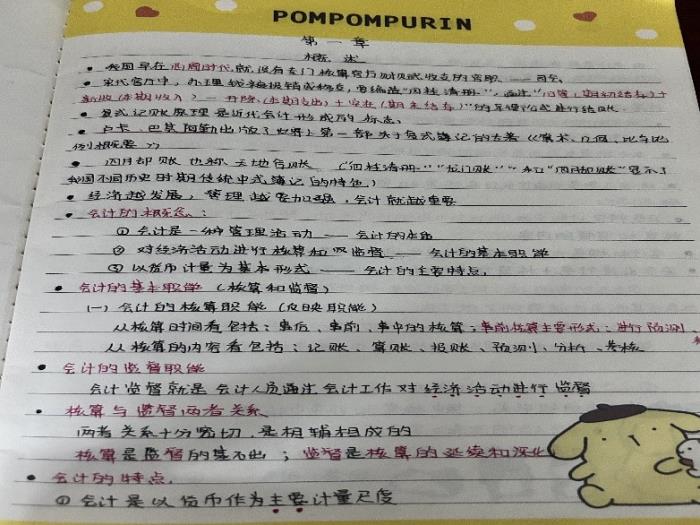 POMPOMPURIN
第一章
概述
• 我国早在西周时代,就设有专门核算官方财赋收支的官职——司会。
• 宋代官厅中,办理钱粮报销或移交,要编造"四柱清册",通过"旧管(期初结存)+
新收(本期收入)=开除(本期支出)+实在(期末结存)"的平衡公式进行结账
• 复式记账原理是近代会计形成的标志。
• 卢卡·巴其阿勒出版了世界上第一部关于复式簿记的专著《算术、几何、比与比
例概要》
• 四脚账也称天地合账 ("四柱清册""龙门账"和"四脚账"显示了
我国不同历史时期传统中式簿记的特色)
• 经济越发展,管理越要加强,会计就越重要
• 会计的概念:
① 会计是一种管理活动——会计的本质
② 对经济活动进行核算和监督——会计的基本职能
③ 以货币计量为基本形式——会计的主要特点,
• 会计的基本职能(核算和监督)
(一)会计的核算职能(反映职能)
从核算时间看包括:事后、事前、事中的核算;事前核算主要形式:进行预测、
从核算的内容看包括:记账、算账、报账、预测、分析、考核
• 会计的监督职能
会计监督就是会计人员通过会计工作对经济活动进行监督
• 核算与监督两者关系
两者关系十分密切,是相辅相成的
核算是监督的基石出;监督是核算的延续和深化
• 会计的特点,
① 会计是以货币作为主要计量尺度